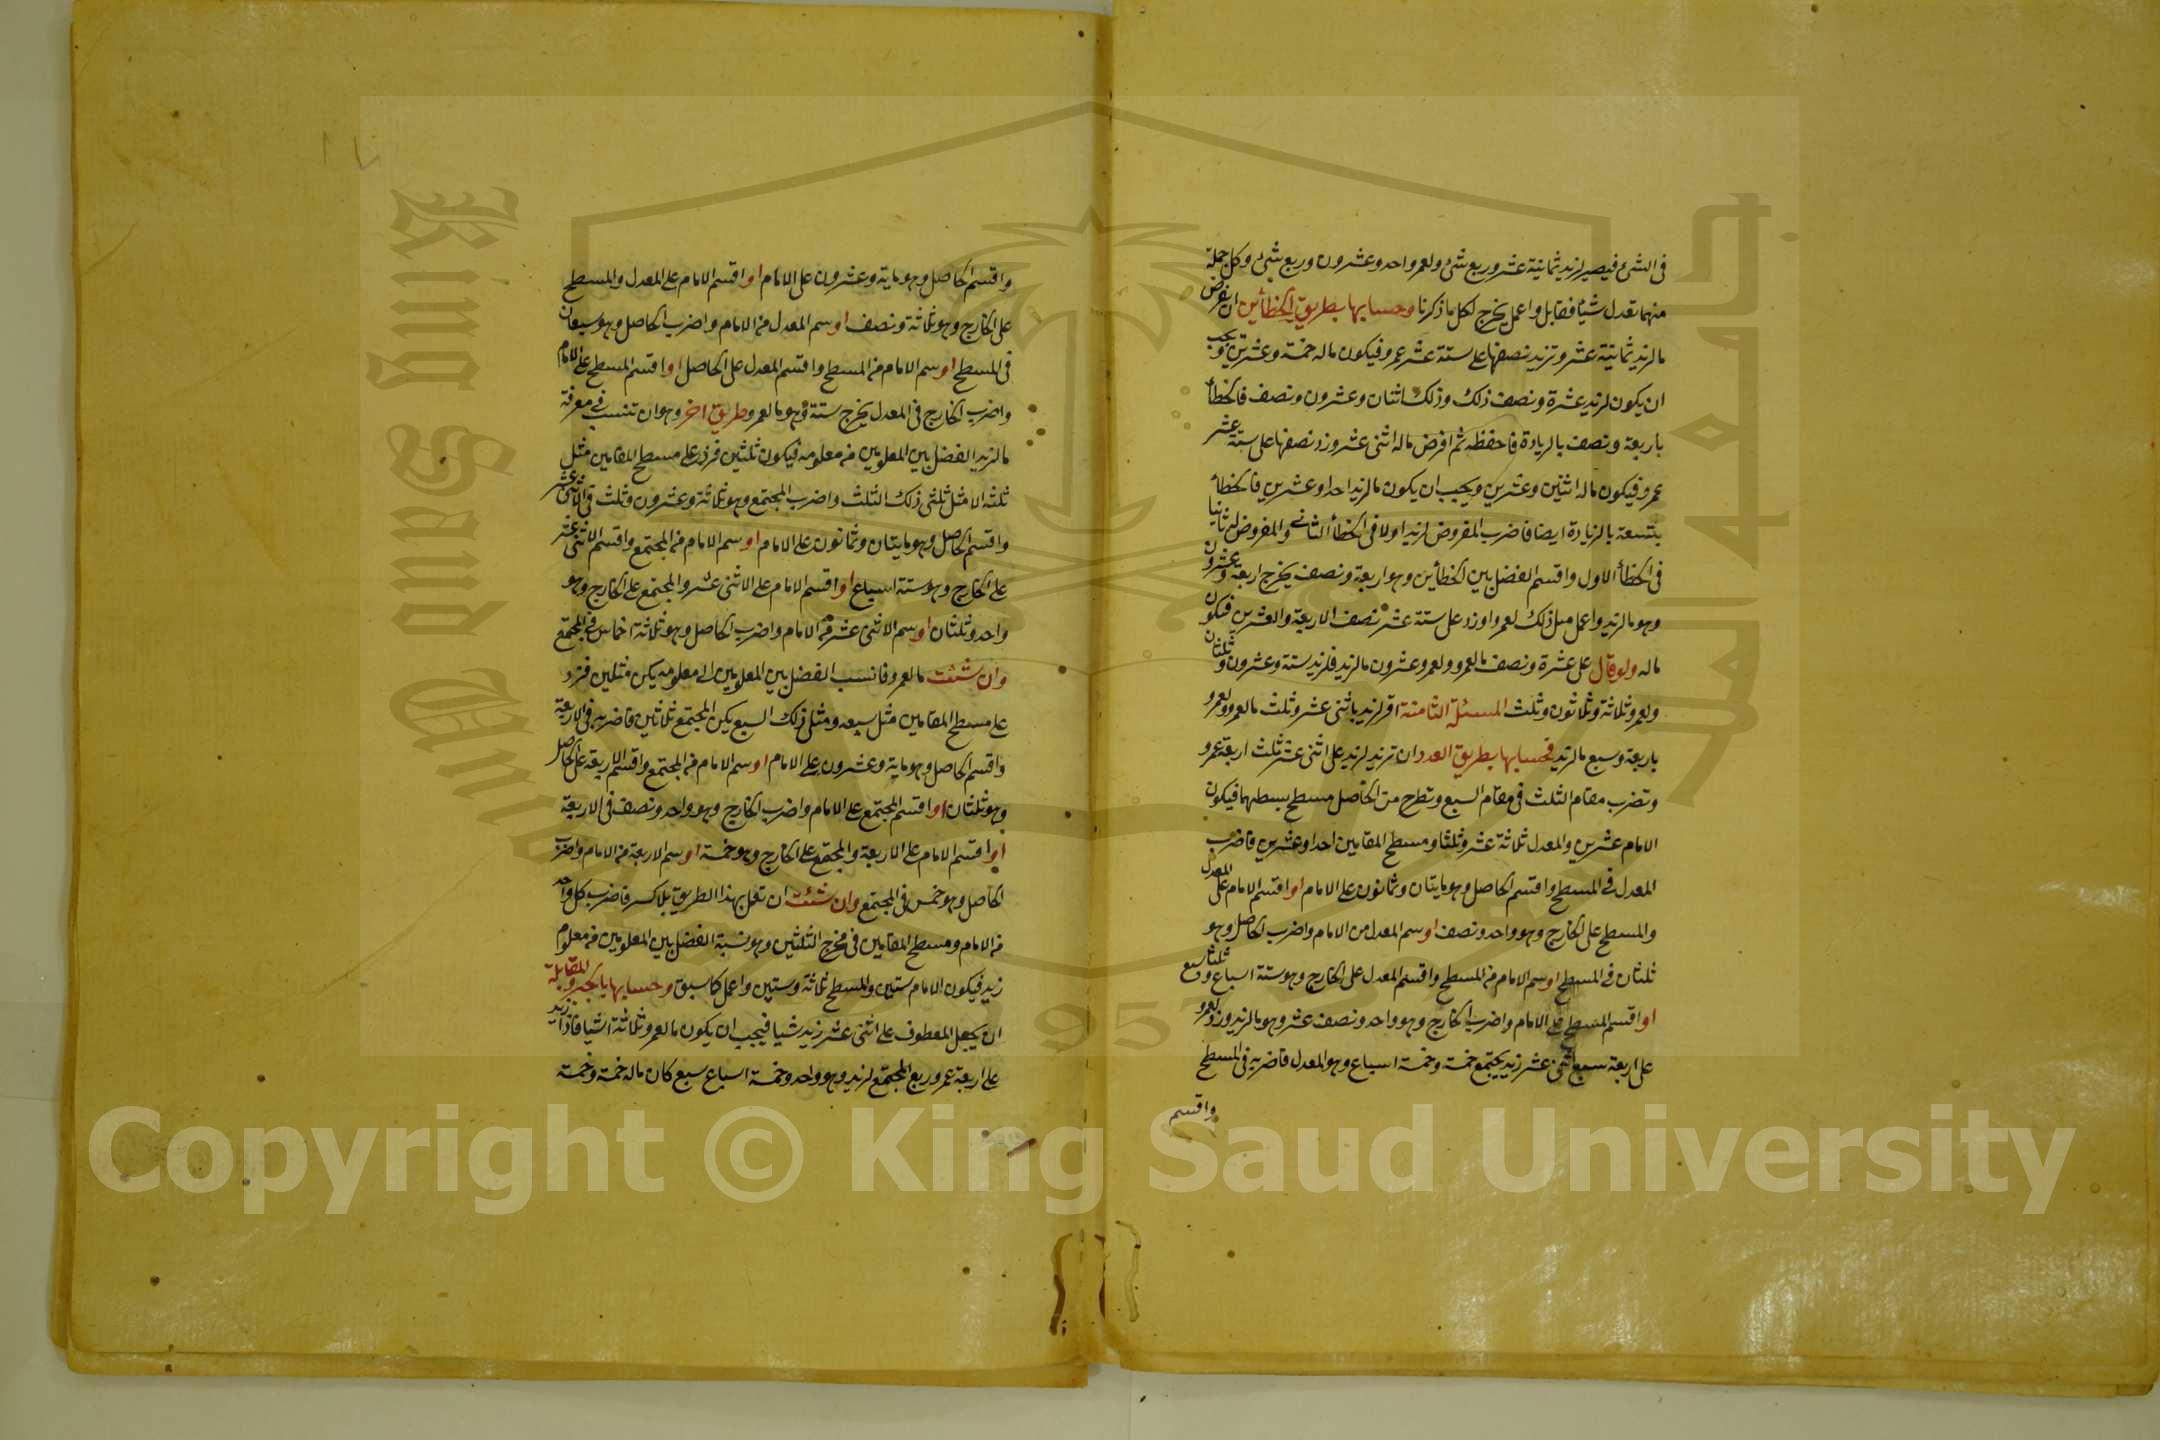 فى الشئ فيصير لزيد ثمانية عشر وربع شئ ولعمرو احد وعشرون وربع شئ وكل جملة
منهما تعدل شيئا فقابل واعمل يخرج لكل ما ذكرنا وحسابها بطريق الخطأين ان تفرض
ما لزيد ثمانية عشر وتزيد نصفها على ستة عشر عمرو فيكون ماله خمسة وعشرين ويجب
ان يكون لزيد عشرة ونصف ذلك وذلك اثنان وعشرون ونصف فالخطأ
باربعة ونصف بالزيادة فاحفظه ثم افرض ماله اثنى عشر وزد نصفها على ستة عشر
عمرو فيكون ماله اثنين وعشرين ويجب ان يكون ما لزيد احدا وعشرين فالخطأ
بتسعة بالزيادة ايضا فاضرب المفروض لزيد اولا فى الخطأ الثانى والمفروض له ثانيا
فى الخطأ الاول واقسم الفضل بين الخطأين وهو اربعة ونصف يخرج اربعة وعشرون
وهو ما لزيد واعمل مثل ذلك لعمرو او زد على ستة عشر نصف الاربعة والعشرين فيكون
ماله ولو قال على عشرة ونصف ما لعمرو ولعمرو عشرون ما لزيد فلزيد ستة وعشرون وثلثان
ولعمرو ثلاثة وثلاثون وثلث المسئلة الثامنة اقر لزيد باثنى عشر وثلث ما لعمرو ولعمرو
باربعة وسبع ما لزيد فحسابها بطريق العدد ان تزيد لزيد على اثنى عشر ثلث اربعة عمرو
وتضرب مقام الثلث فى مقام السبع وتطرح من الحاصل مسطح بسطهما فيكون
الامام عشرين والمعدل ثلاثة عشر وثلثا ومسطح المقامين احدا وعشرين فاضرب
المعدل فى المسطح واقسم الحاصل وهو مايتان وثمانون على الامام او اقسم الامام على المعدل
والمسطح على الخارج وهو واحد ونصف او سم المعدل من الامام واضرب الحاصل وهو
ثلثان فى المسطح او سم الامام من المسطح واقسم المعدل على الخارج وهو ستة اسباع وثلثا سبع
او اقسم المسطح على الامام واضرب الخارج وهو واحد ونصف عشر وهو ما لزيد وزد لعمرو
على اربعة سبع اثنى عشر زيد يجتمع خمسة وخمسة اسباع وهو المعدل فاضربه فى المسطح
واقسم
واقسم الحاصل وهو ماية وعشرون على الامام او اقسم الامام على المعدل والمسطح
على الخارج وهو ثلاثة ونصف او سم المعدل من الامام واضرب الحاصل وهو سبعان
فى المسطح او سم الامام من المسطح واقسم المعدل على الحاصل او اقسم المسطح على الامام
واضرب الخارج فى المعدل يخرج ستة وهو ما لعمرو طريق اخر وهو ان تنسب فى معرفة
ما لزيد الفضل بين المعلومين من معلومه فيكون ثلثين فزد على مسطح المقامين مثل
ثلثه الا مثل ثلثى ذلك الثلث واضرب المجتمع وهو ثلاثة وعشرون وثلث فى الاثنى عشر
واقسم الحاصل وهو مايتان وثمانون على الامام او سم الامام من المجتمع واقسم الاثنى عشر
على الخارج وهو ستة اسباع او اقسم الامام على الاثنى عشر والمجتمع على الخارج وهو
واحد وثلثان او سم الاثنى عشر من الامام واضرب الحاصل وهو ثلاثة اخماس فى المجتمع
وان شئت ما لعمرو فانسب الفضل بين المعلومين الى معلومه يكن مثلين فزد
على مسطح المقامين مثل سبعه ومثلى ذلك السبع يكن المجتمع ثلاثين فاضربه فى الاربعة
واقسم الحاصل وهو ماية وعشرون على الامام او سم الامام من المجتمع واقسم الاربعة على الحاصل
وهو ثلثان او اقسم المجتمع على الامام واضرب الخارج وهو واحد ونصف فى الاربعة
او اقسم الامام على الاربعة والمجتمع على الخارج وهو خمسة او سم الاربعة من الامام واضرب
الحاصل وهو خمس فى المجتمع وان شئت ان تعمل بهذا الطريق بلا كسر فاضرب كل واحد
من الامام ومسطح المقامين فى مخرج الثلثين وهو نسبة الفضل بين المعلومين من معلوم
زيد فيكون الامام ستين والمسطح ثلاثة وستين واعمل كما سبق وحسابها بالجبر والمقابلة
ان يجعل المعطوف على اثنى عشر زيد شيا فيجب ان يكون ما لعمرو ثلاثة اشيا فاذا زيد
على اربعة عمرو وربع المجتمع لزيد وهو واحد وخمسة اسباع سبع كان ماله خمسة وخمسة
Copyright © King Saud University
King Saud University
جامعة الملك سعود